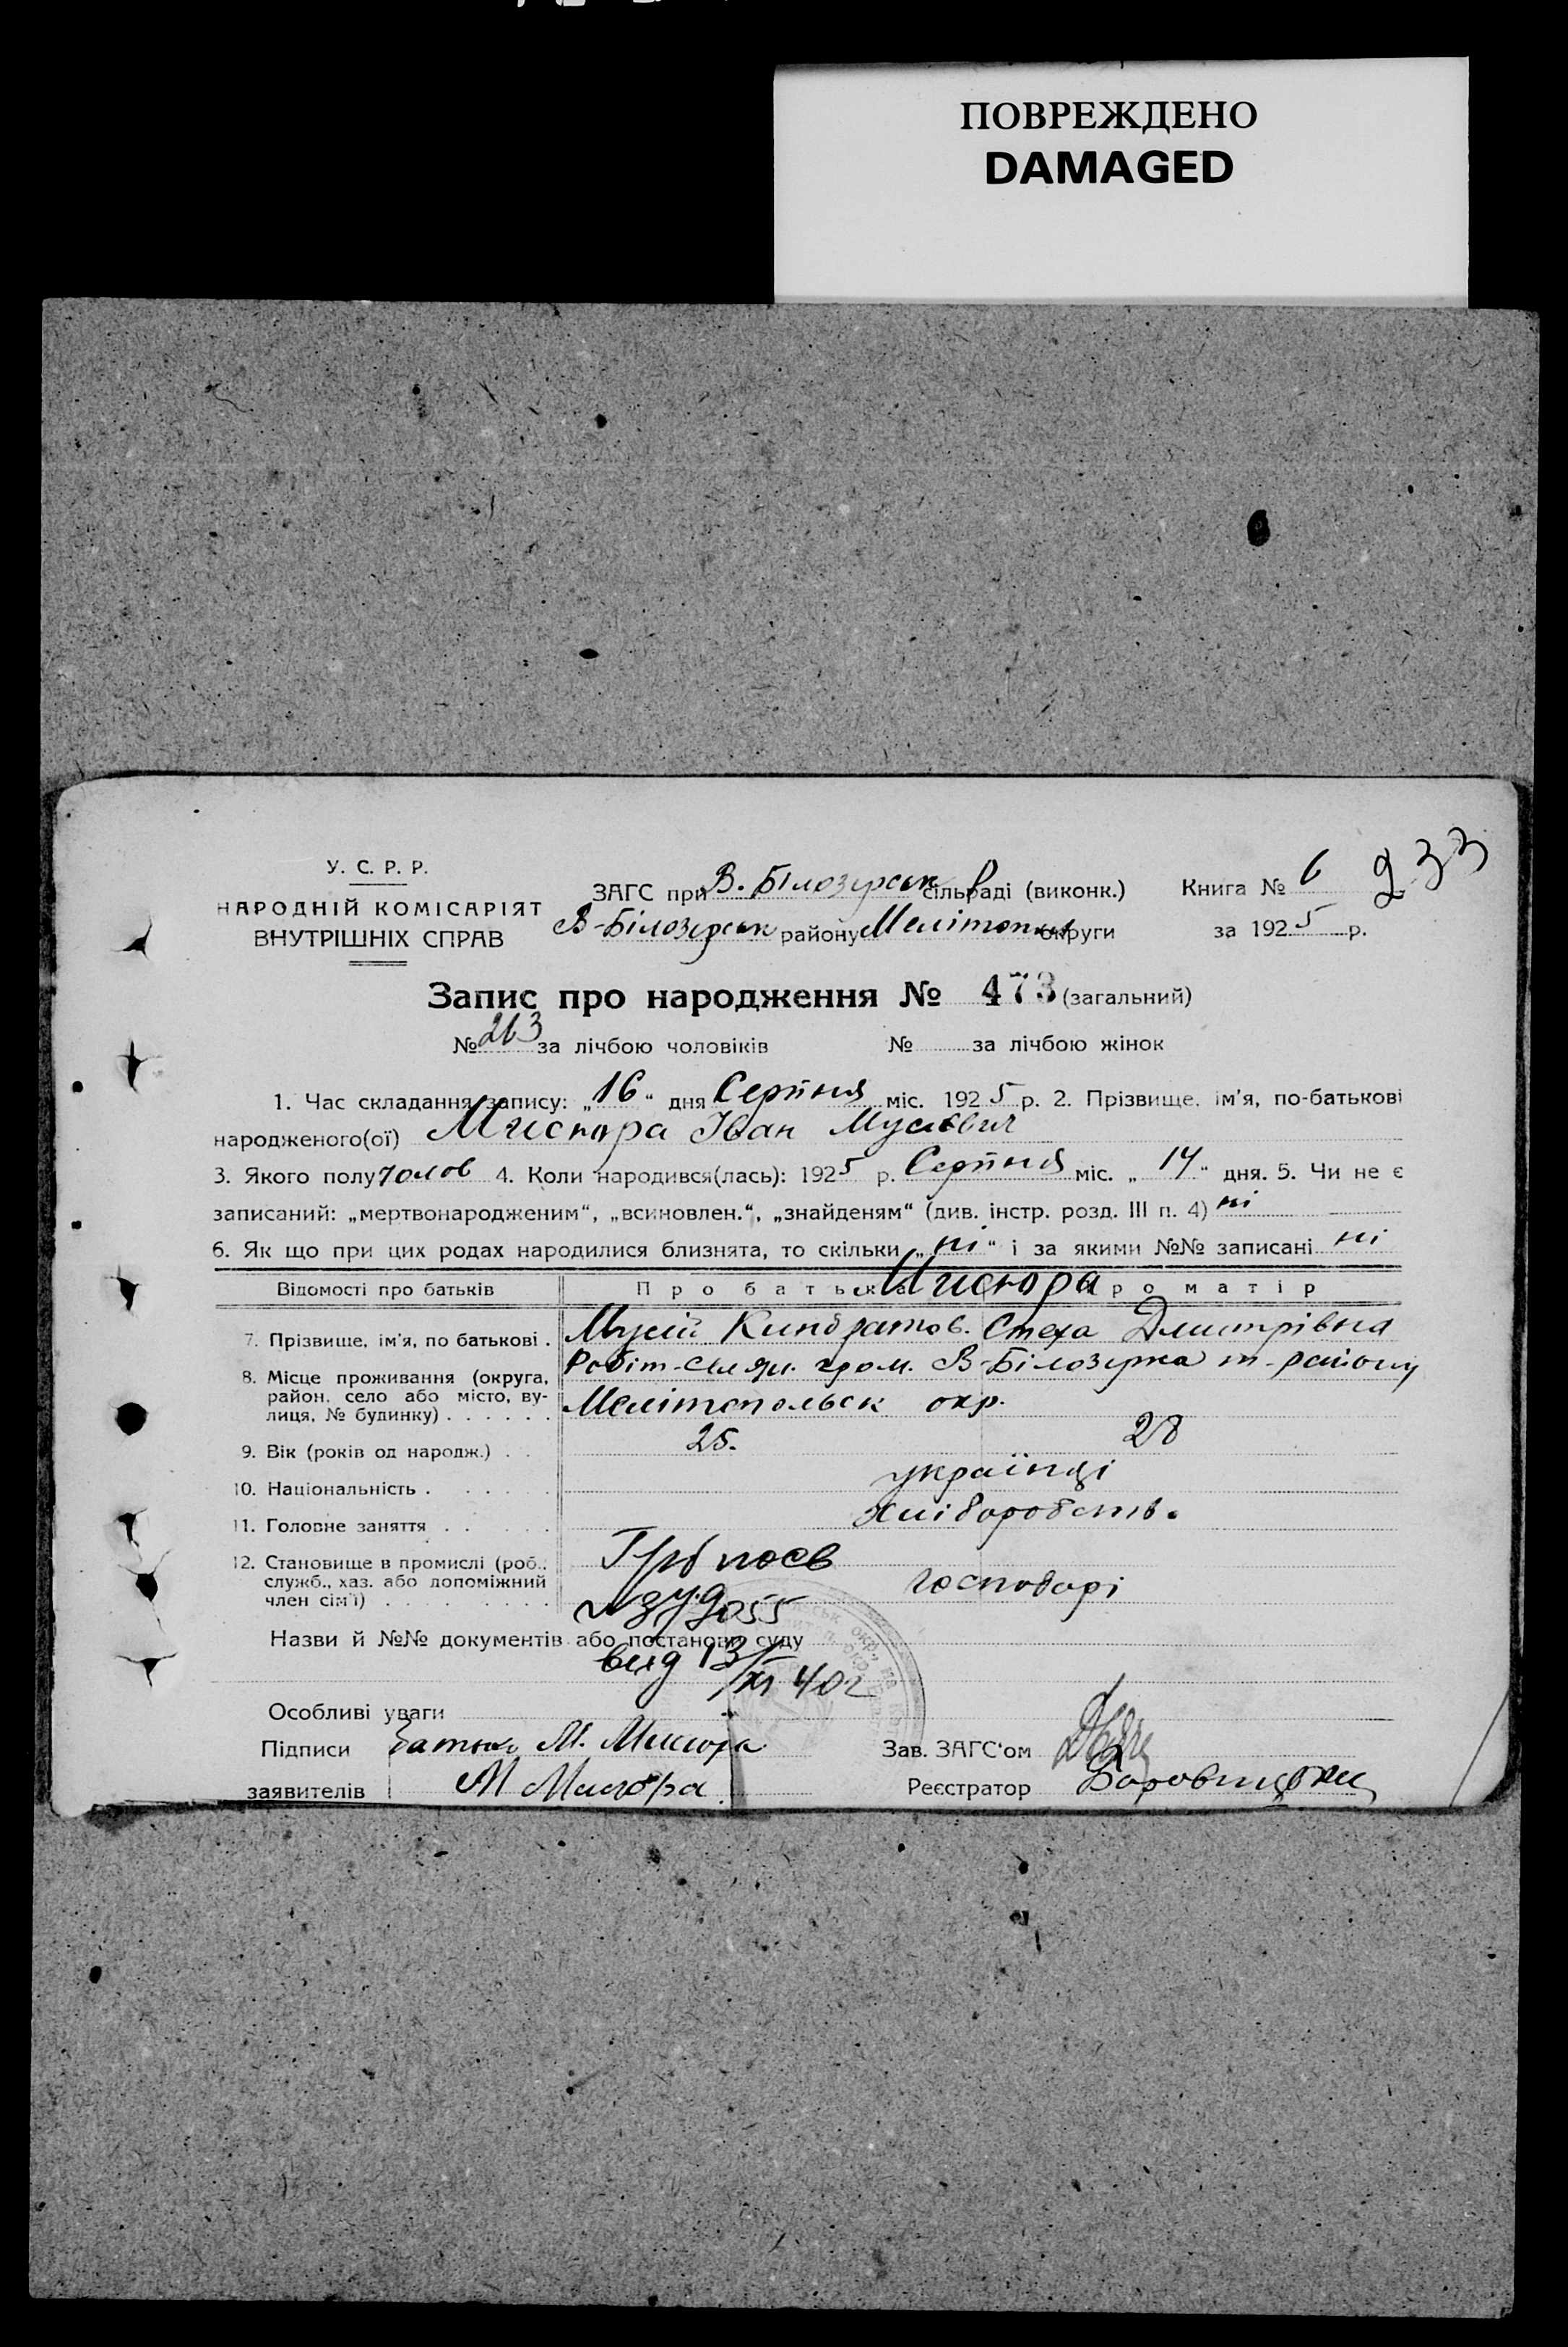 ПОВРЕЖДЕНО
DAMAGED
У. С. Р. Р.
НАРОДНІЙ КОМІСАРІЯТ
ВНУТРІШНІХ СПРАВ
ЗАГС при В. Білозерськ сільраді (виконк.)
В-Білозерськ району Мелітополь округи
Книга № 6
233
за 1925 р.
Запис про народження № 473 (загальний)
№ 263 за лічбою чоловіків № за лічбою жінок
1. Час складання запису: „16“ дня Серпня міс. 1925 р. 2. Прізвище, ім'я, по-батькові
народженого(ої) Мисюра Іван Мусієвич
3. Якого полу чолов 4. Коли народився(лась): 1925 р. Серпня міс. „14“ дня. 5. Чи не є
записаний: „мертвонародженим“, „всиновлен.“, „знайденям“ (див. інстр. розд. III п. 4) ні
6. Як що при цих родах народилися близнята, то скільки „ні“ і за якими №№ записані ні
Відомості про батьків Про батька Мисюра Про матір
7. Прізвище, ім'я, по батькові . Мусій Киндратов. Стеха Дмитрівна
8. Місце проживання (округа, район, село або місто, вулиця, № будинку) . . . . . . Робіт-селян. гром. В-Білозерка т-району
Мелітопольськ окр.
9. Вік (років од народж.) . . 25. 28
10. Національність . . . . . . українці
11. Головне заняття . . . . . хліборобств.
12. Становище в промислі (роб., служб., хаз. або допоміжний член сім'ї) . . . . . . . . . господарі
055
Назви й №№ документів або постанови суду
выд 13/XI 40г
Особливі уваги
Підписи батько М. Мисюра
заявителів М Мисюра
Зав. ЗАГС'ом
Реєстратор